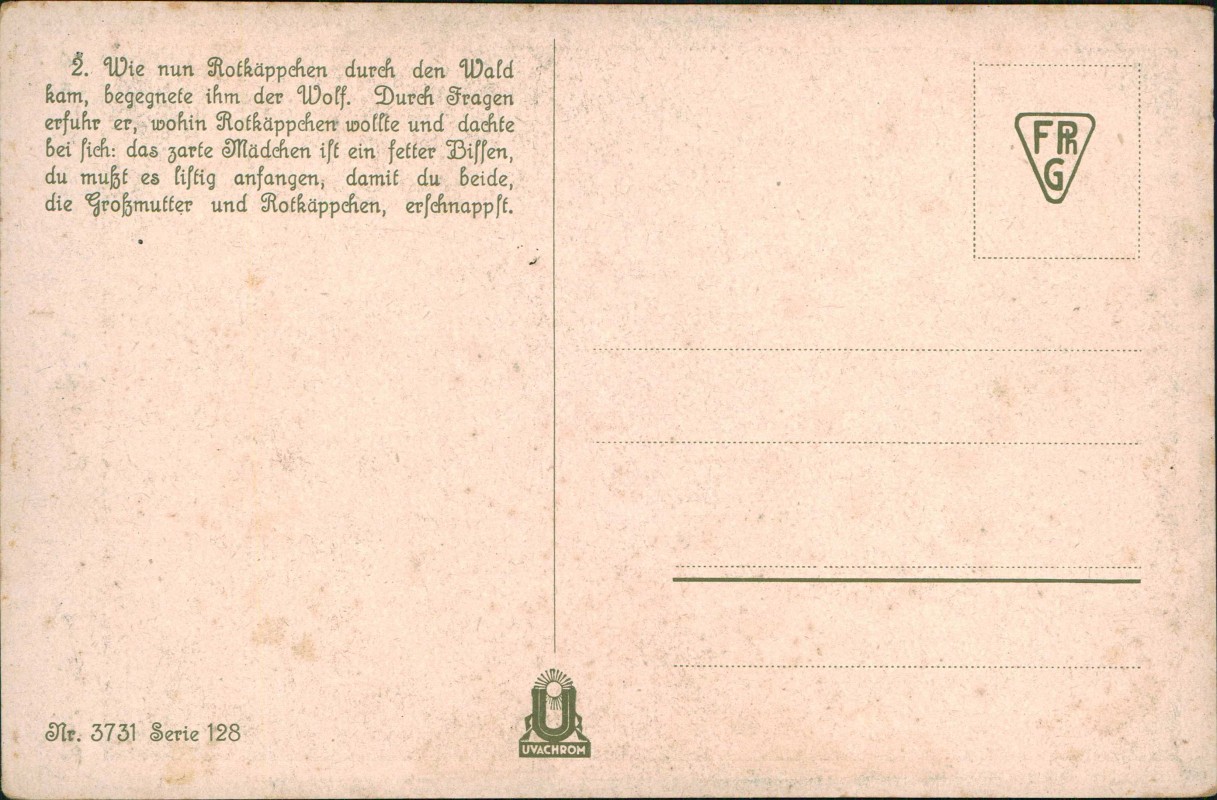 2. Wie nun Rotkäppchen durch den Wald
kam, begegnete ihm der Wolf. Durch Fragen
erfuhr er, wohin Rotkäppchen wollte und dachte
bei ſich: das zarte Mädchen iſt ein fetter Biſſen,
du mußt es liſtig anfangen, damit du beide,
die Großmutter und Rotkäppchen, erſchnappſt.
FPh
G
Nr. 3731 Serie 128
U
UVACHROM